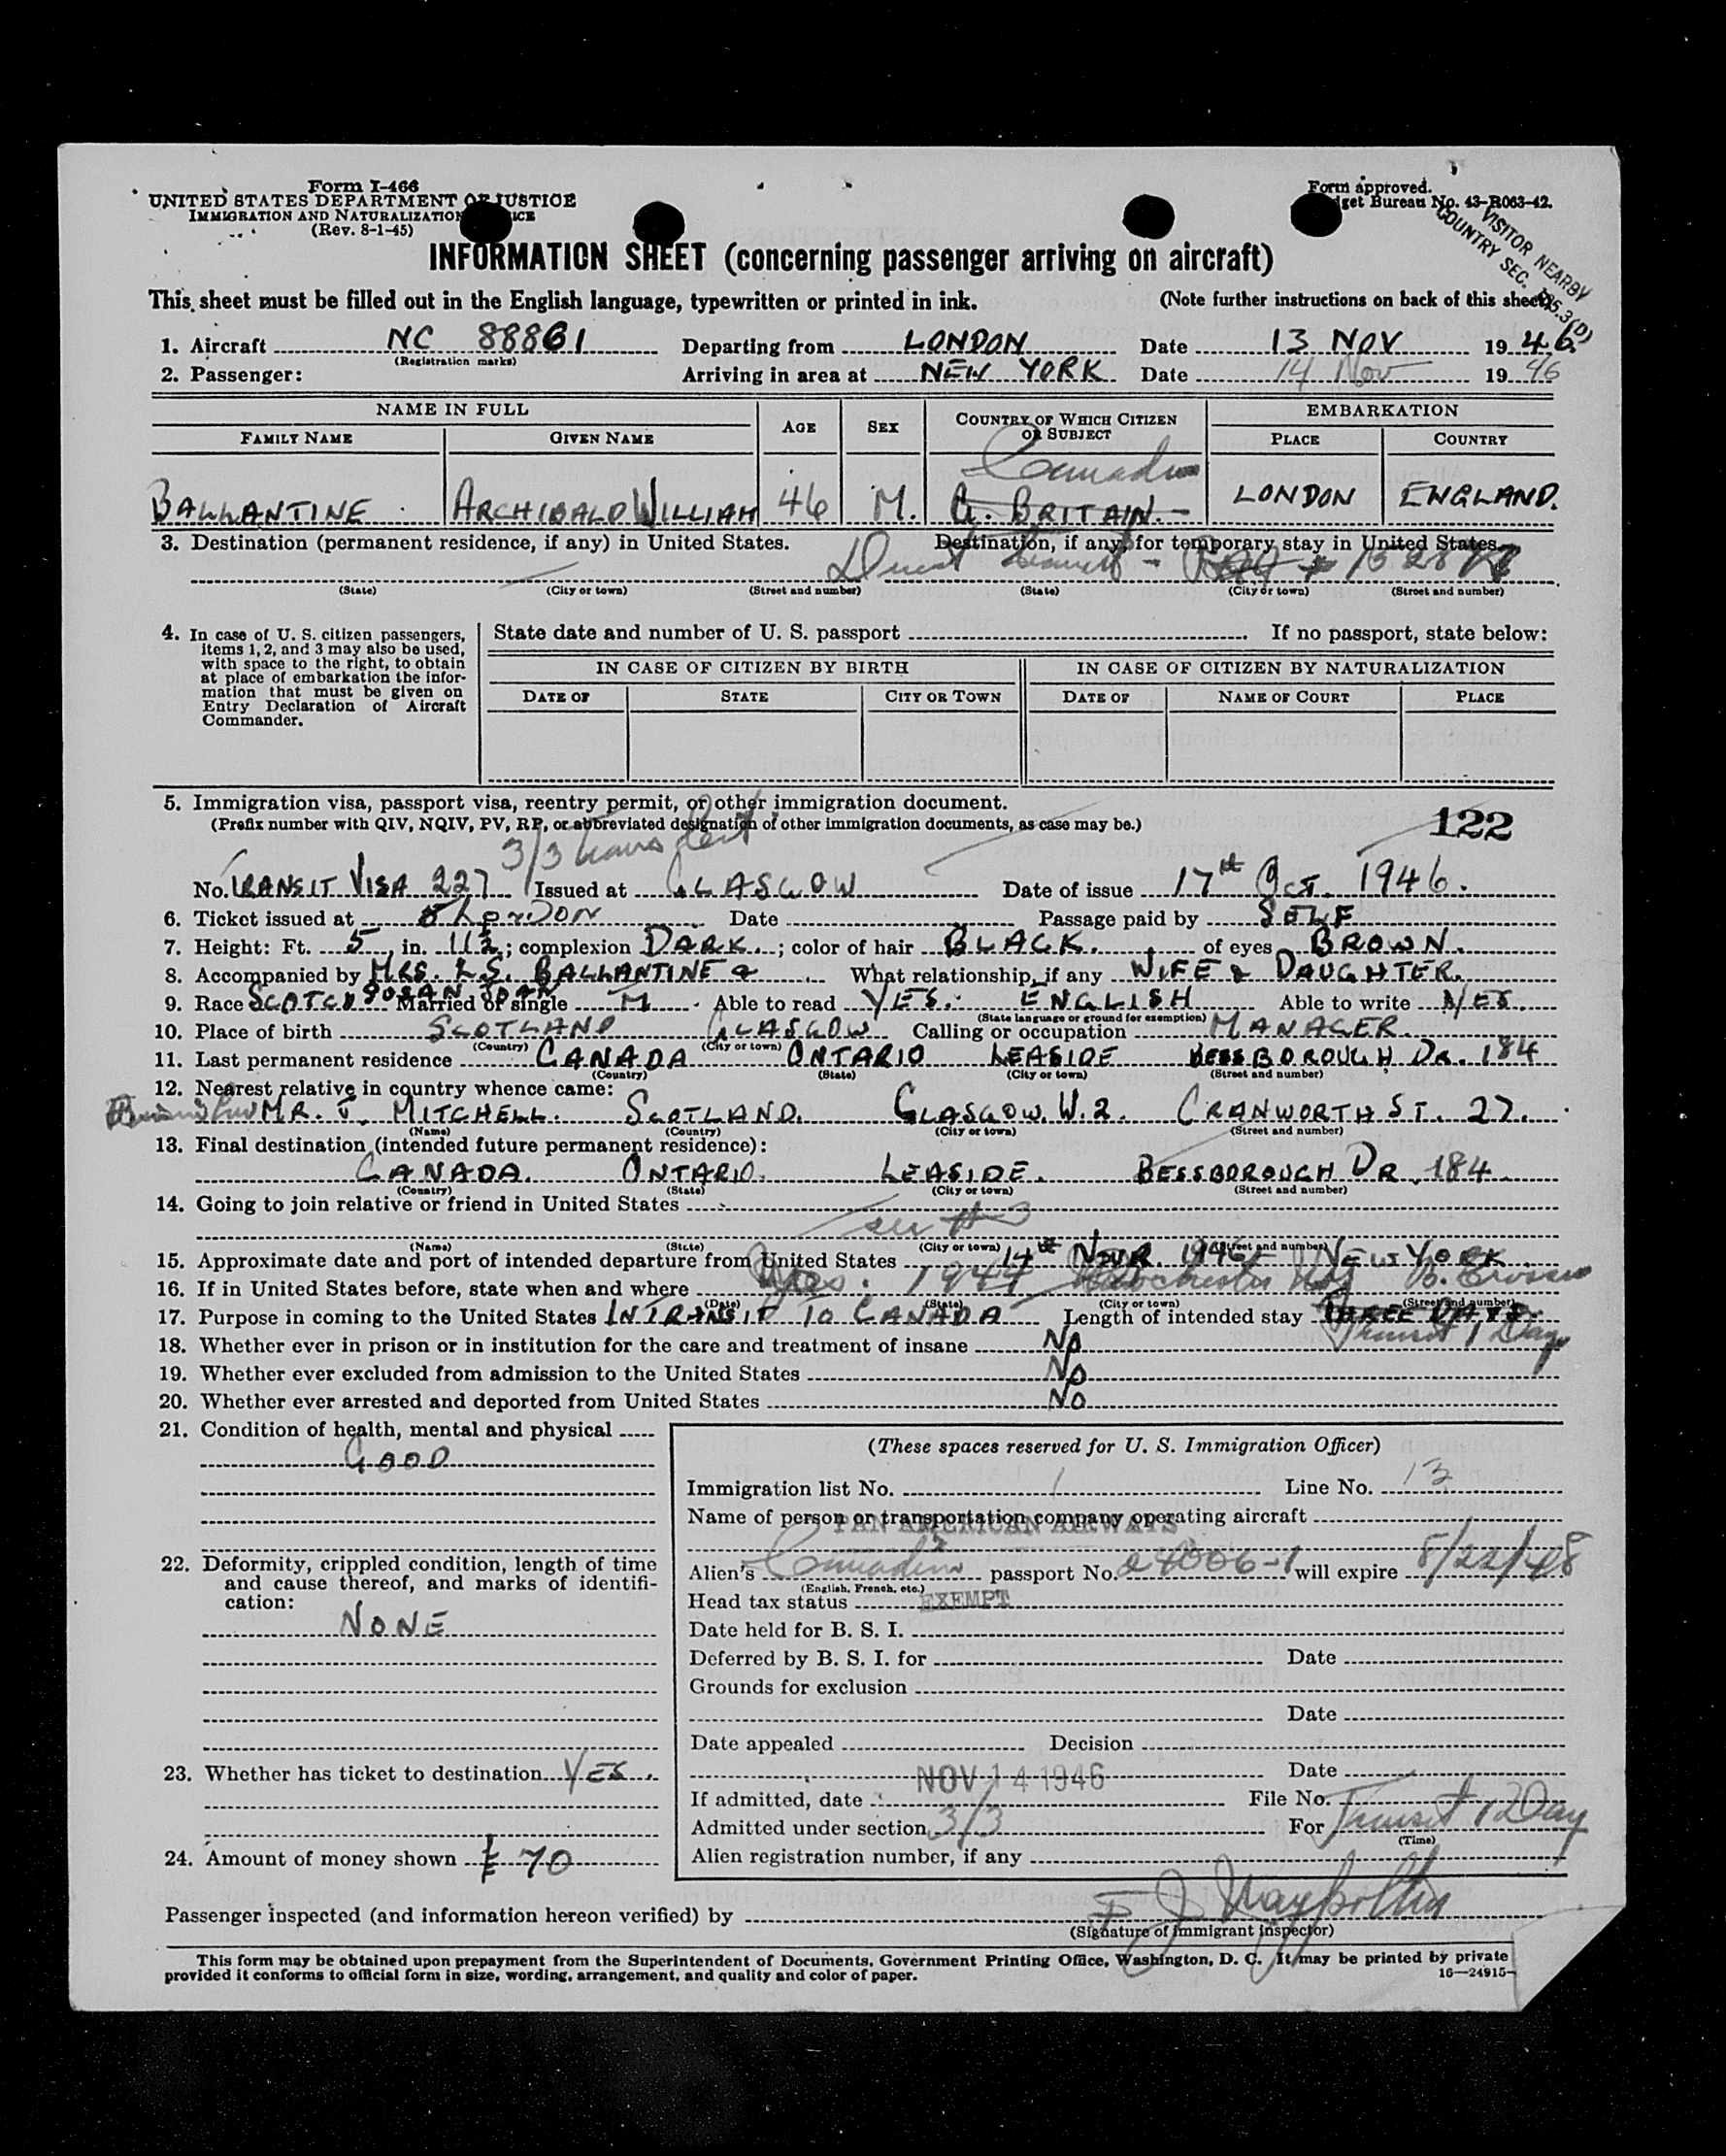 Form I-466
UNITED STATES DEPARTMENT OF JUSTICE
IMMIGRATION AND NATURALIZATION
(Rev. 8-1-45)
Form approved.
get Bureau No. 43-R063-42.
VISITOR NEARBY
COUNTRY SEC. 3(D)
INFORMATION SHEET (concerning passenger arriving on aircraft)
This sheet must be filled out in the English language, typewritten or printed in ink. (Note further instructions on back of this sheet)
1. Aircraft NC 88861 Departing from LONDON Date 13 NOV 1946
(Registration marks)
2. Passenger: Arriving in area at NEW YORK Date 14 Nov 1946
NAME IN FULL AGE SEX COUNTRY OF WHICH CITIZEN OR SUBJECT EMBARKATION
FAMILY NAME GIVEN NAME PLACE COUNTRY
BALLANTINE ARCHIBALD WILLIAM 46 M. G. BRITAIN.- LONDON ENGLAND.
3. Destination (permanent residence, if any) in United States. Destination, if any, for temporary stay in United States
(State) (City or town) (Street and number) (State) (City or town) (Street and number)
4. In case of U. S. citizen passengers, items 1, 2, and 3 may also be used, with space to the right, to obtain at place of embarkation the information that must be given on Entry Declaration of Aircraft Commander.
State date and number of U. S. passport If no passport, state below:
IN CASE OF CITIZEN BY BIRTH IN CASE OF CITIZEN BY NATURALIZATION
DATE OF STATE CITY OR TOWN DATE OF NAME OF COURT PLACE
5. Immigration visa, passport visa, reentry permit, or other immigration document.
(Prefix number with QIV, NQIV, PV, RP, or abbreviated designation of other immigration documents, as case may be.) 122
3/3
No. TRANSIT VISA 227 Issued at GLASGOW Date of issue 17th OCT. 1946.
6. Ticket issued at LONDON Date Passage paid by SELF
7. Height: Ft. 5 in. 11½; complexion DARK. ; color of hair BLACK. of eyes BROWN.
8. Accompanied by MRS. L.S. BALLANTINE & What relationship, if any WIFE & DAUGHTER.
9. Race SCOTCH Married or single M Able to read YES. ENGLISH Able to write YES.
(State language or ground for exemption)
10. Place of birth SCOTLAND GLASGOW Calling or occupation MANAGER.
(Country) (City or town)
11. Last permanent residence CANADA ONTARIO LEASIDE BESSBOROUGH DR. 184
(Country) (State) (City or town) (Street and number)
12. Nearest relative in country whence came:
MR. J. MITCHELL. SCOTLAND. GLASGOW. W.2. CRANWORTH ST. 27.
(Name) (Country) (City or town) (Street and number)
13. Final destination (intended future permanent residence):
CANADA. ONTARIO. LEASIDE. BESSBOROUGH DR. 184
(Country) (State) (City or town) (Street and number)
14. Going to join relative or friend in United States
see #3
(Name) (State) (City or town) (Street and number)
15. Approximate date and port of intended departure from United States 14th NOVR. 1946 NEW YORK
16. If in United States before, state when and where Yes. 1944
(Date) (State) (City or town) (Street and number)
17. Purpose in coming to the United States INTRANSIT TO CANADA Length of intended stay THREE DAYS.
Transit 1 Day
18. Whether ever in prison or in institution for the care and treatment of insane NO
19. Whether ever excluded from admission to the United States NO
20. Whether ever arrested and deported from United States NO
21. Condition of health, mental and physical
GOOD
22. Deformity, crippled condition, length of time and cause thereof, and marks of identification:
NONE
23. Whether has ticket to destination YES.
24. Amount of money shown £ 70
(These spaces reserved for U. S. Immigration Officer)
Immigration list No. 1 Line No. 13
Name of person or transportation company operating aircraft
PAN AMERICAN AIRWAYS
Alien's Canadian passport No. 24006-1 will expire 8/22/48
(English, French, etc.)
Head tax status EXEMPT
Date held for B. S. I.
Deferred by B. S. I. for Date
Grounds for exclusion
Date
Date appealed Decision
Date
If admitted, date NOV 14 1946 File No.
Admitted under section 3/3 For Transit 1 Day
(Time)
Alien registration number, if any
Passenger inspected (and information hereon verified) by
(Signature of immigrant inspector)
This form may be obtained upon prepayment from the Superintendent of Documents, Government Printing Office, Washington, D. C. It may be printed by private
provided it conforms to official form in size, wording, arrangement, and quality and color of paper. 16—24915-